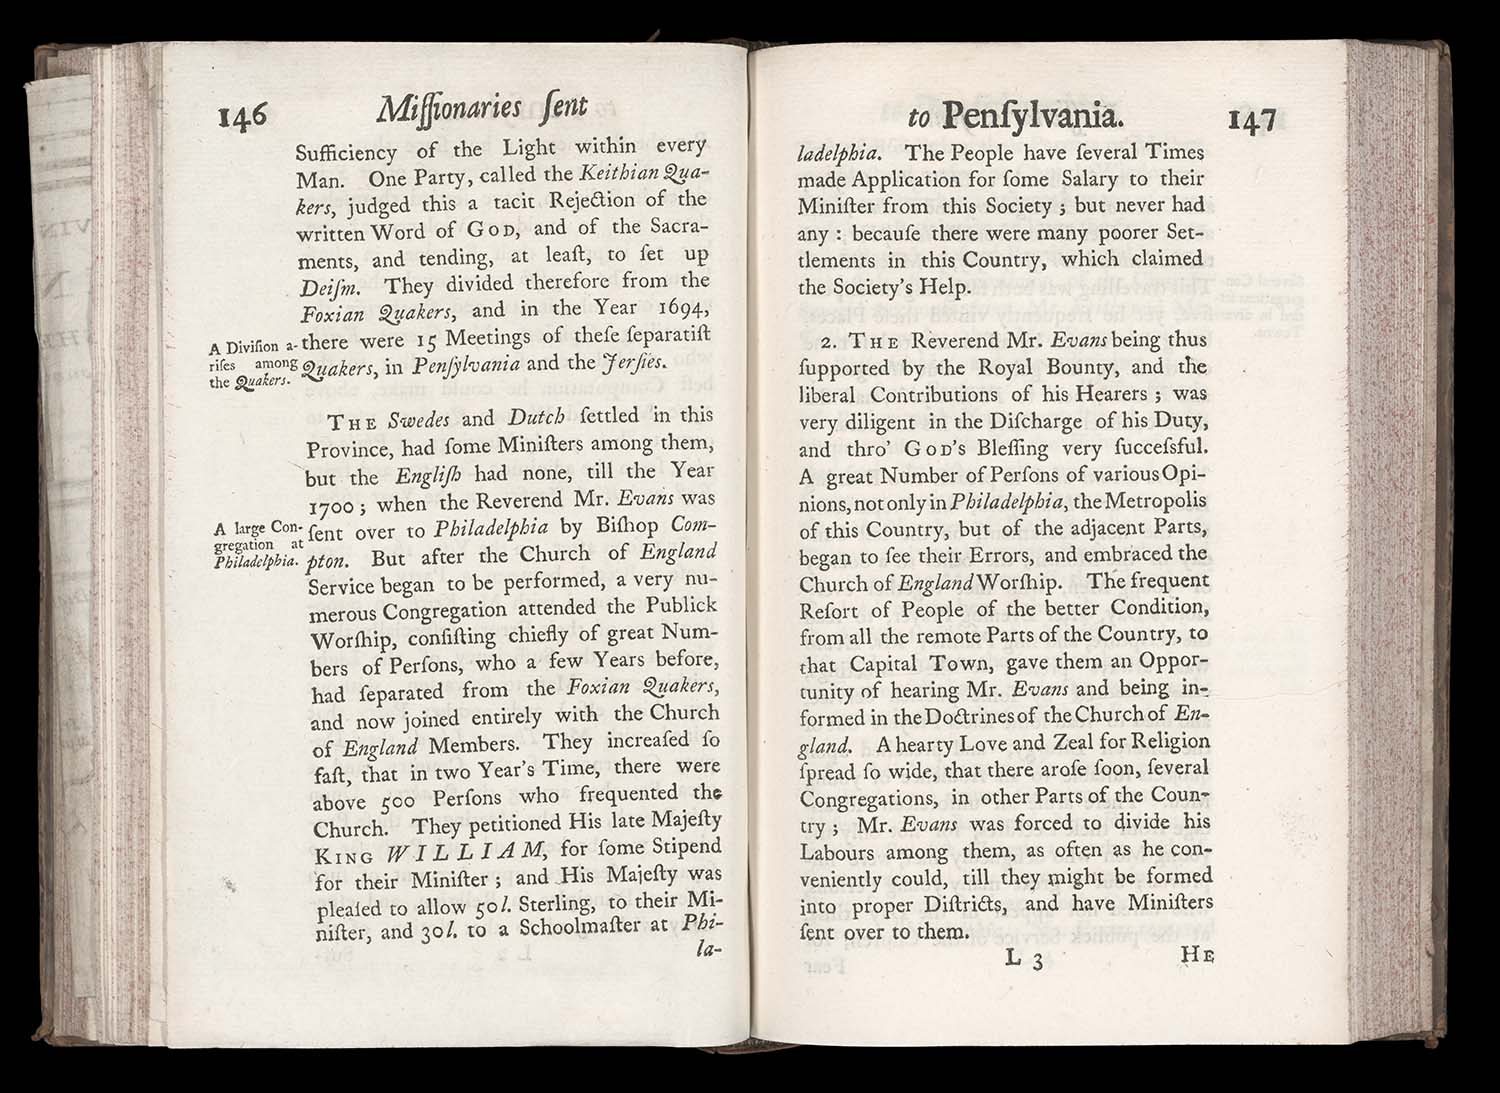 146 Miſſionaries ſent
Sufficiency of the Light within every
Man. One Party, called the Keithian Qua-
kers, judged this a tacit Rejection of the
written Word of GOD, and of the Sacra-
ments, and tending, at leaſt, to ſet up
Deiſm. They divided therefore from the
Foxian Quakers, and in the Year 1694,
there were 15 Meetings of theſe ſeparatiſt
Quakers, in Penſylvania and the Jerſies.
A Diviſion a-
riſes among
the Quakers.
THE Swedes and Dutch ſettled in this
Province, had ſome Miniſters among them,
but the Engliſh had none, till the Year
1700; when the Reverend Mr. Evans was
ſent over to Philadelphia by Biſhop Com-
pton. But after the Church of England
A large Con-
gregation at
Philadelphia.
Service began to be performed, a very nu-
merous Congregation attended the Publick
Worſhip, conſiſting chiefly of great Num-
bers of Perſons, who a few Years before,
had ſeparated from the Foxian Quakers,
and now joined entirely with the Church
of England Members. They increaſed ſo
faſt, that in two Year's Time, there were
above 500 Perſons who frequented the
Church. They petitioned His late Majeſty
KING WILLIAM, for ſome Stipend
for their Miniſter; and His Majeſty was
pleaſed to allow 50l. Sterling, to their Mi-
niſter, and 30l. to a Schoolmaſter at Phi-
la-
to Penſylvania. 147
ladelphia. The People have ſeveral Times
made Application for ſome Salary to their
Miniſter from this Society; but never had
any: becauſe there were many poorer Set-
tlements in this Country, which claimed
the Society's Help.
2. THE Reverend Mr. Evans being thus
ſupported by the Royal Bounty, and the
liberal Contributions of his Hearers; was
very diligent in the Diſcharge of his Duty,
and thro' GOD'S Bleſſing very ſucceſsful.
A great Number of Perſons of various Opi-
nions, not only in Philadelphia, the Metropolis
of this Country, but of the adjacent Parts,
began to ſee their Errors, and embraced the
Church of England Worſhip. The frequent
Reſort of People of the better Condition,
from all the remote Parts of the Country, to
that Capital Town, gave them an Oppor-
tunity of hearing Mr. Evans and being in-
formed in the Doctrines of the Church of En-
gland. A hearty Love and Zeal for Religion
ſpread ſo wide, that there aroſe ſoon, ſeveral
Congregations, in other Parts of the Coun-
try; Mr. Evans was forced to divide his
Labours among them, as often as he con-
veniently could, till they might be formed
into proper Diſtricts, and have Miniſters
ſent over to them.
L 3 HE